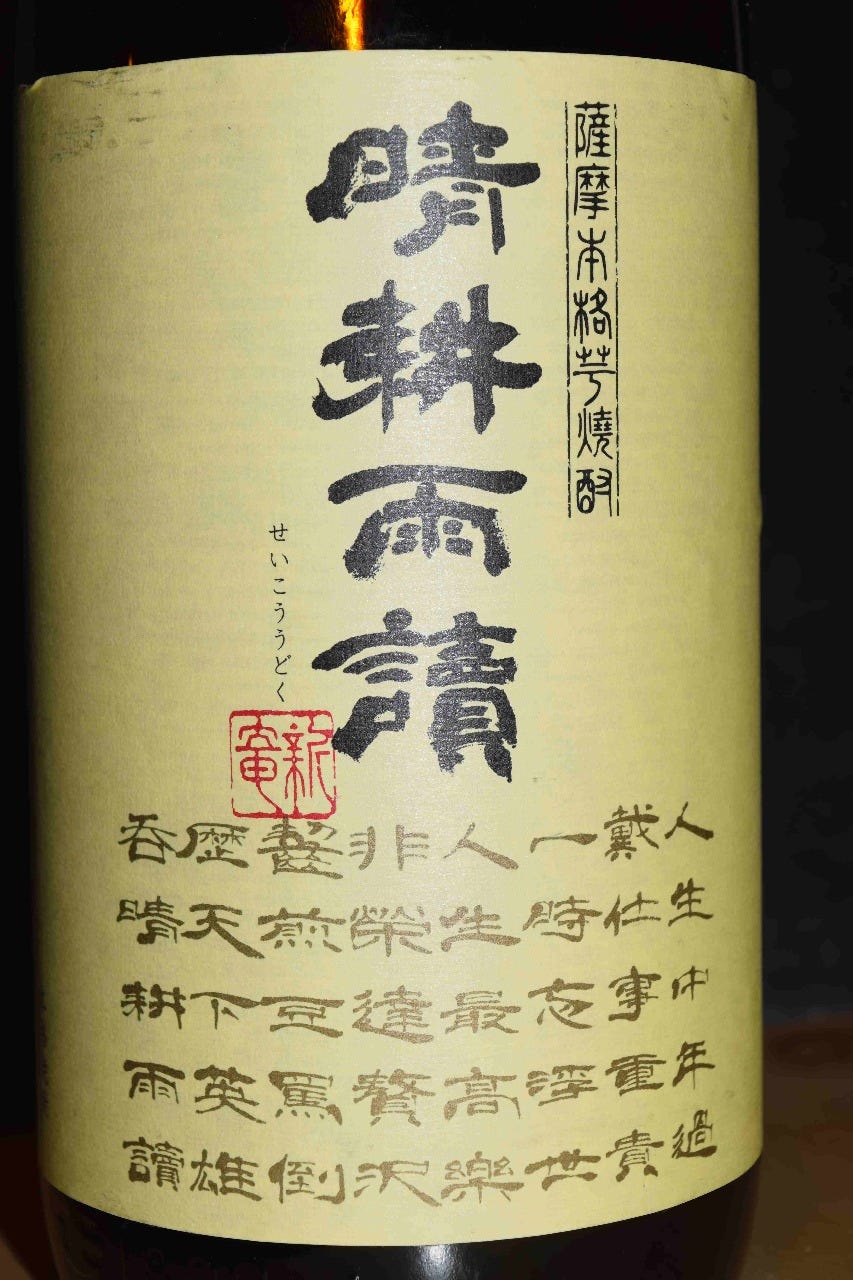 薩摩本格芋燒酎
晴耕雨讀
せいこううどく
人生中年過
戴仕事重責
一時忘浮世
人生最高樂
非榮達贅沢
齧煎豆罵倒
歴天下英雄
呑晴耕雨讀